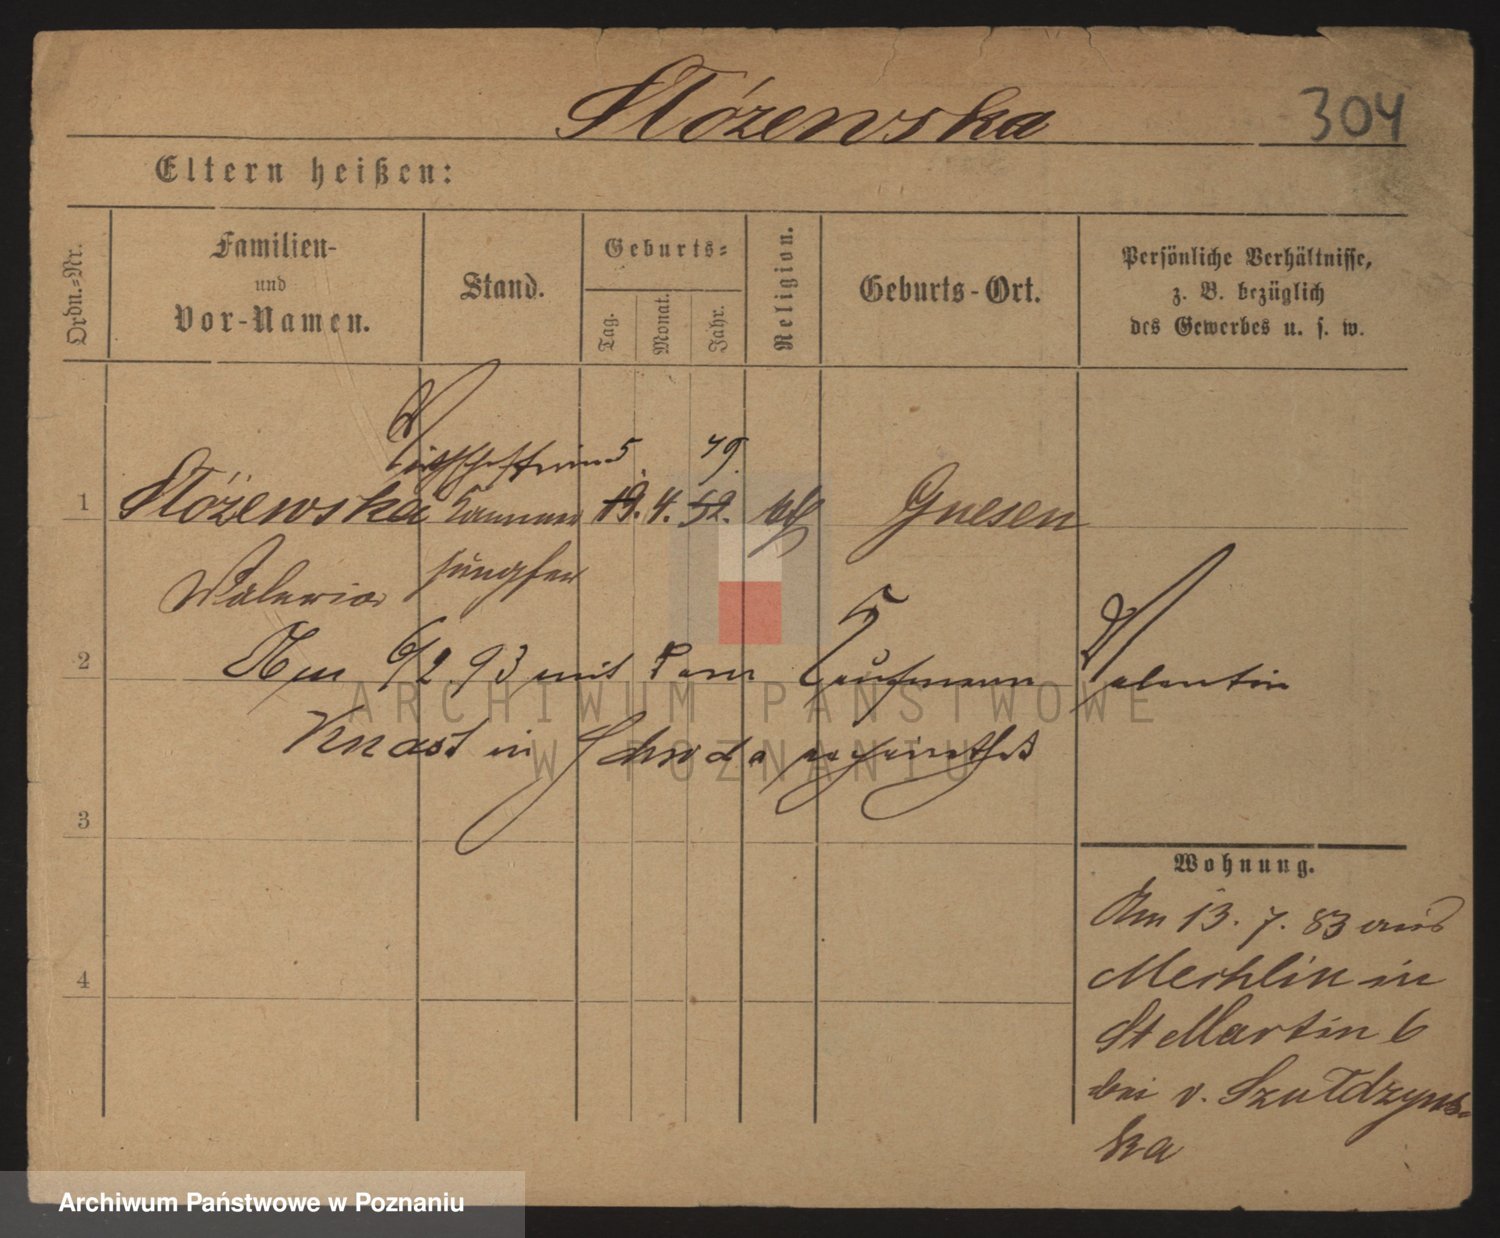 Stóżewska 304
Eltern heißen:
Ordn.-Nr.
Familien-
und
Vor-Namen.
Stand.
Geburts-
Tag.
Monat.
Jahr.
Religion.
Geburts-Ort.
Persönliche Verhältnisse,
z. B. bezüglich
des Gewerbes u. s. w.
Wirthschafterin 5. 49.
1 Stóżewska Kammer 19. 4. 52. kth Gnesen
Waleria jungfer
2 Am 6/2. 93 mit dem Kaufmann Valentin
Knast in Schroda verheirathet
3
4
Wohnung.
Am 13. 7. 83 aus
Mechlin in
St Martin 6
bei v. Szułdrzyńs-
ka
ARCHIWUM PAŃSTWOWE
W POZNANIU
Archiwum Państwowe w Poznaniu